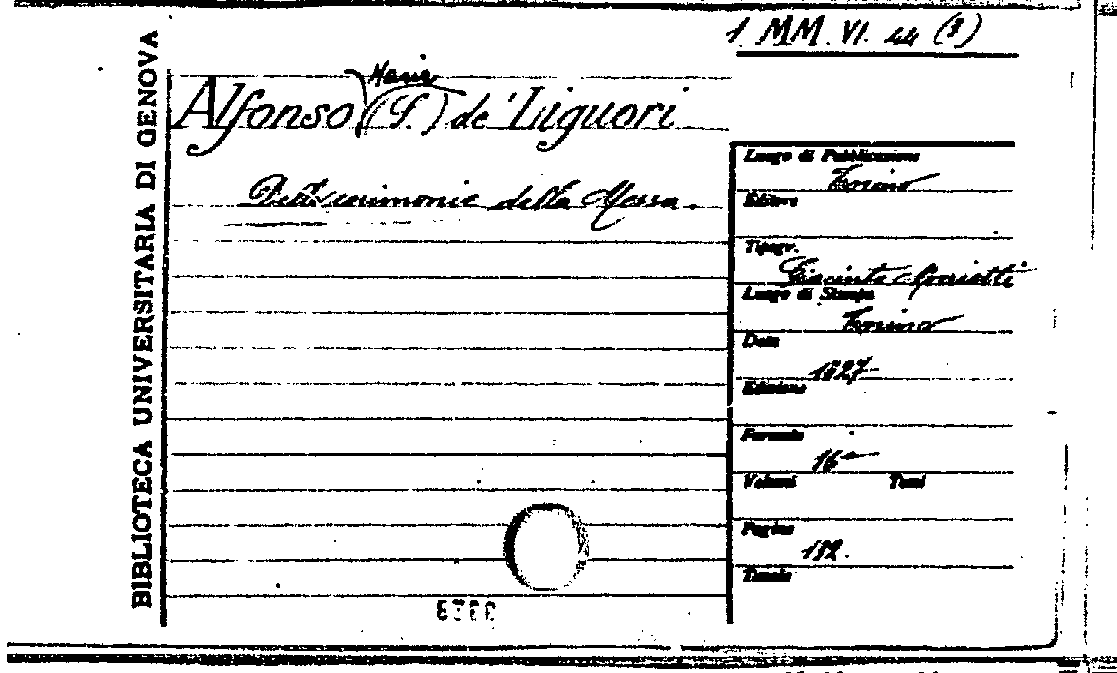 1 MM. VI. 44 (8)
BIBLIOTECA UNIVERSITARIA DI GENOVA
Maria
Alfonso (S.) de' Liguori
Delle cerimonie della Messa.
Luogo di Pubblicazione
Torino
Editore
Tipogr.
Giacinto Marietti
Luogo di Stampa
Torino
Data
1827
Edizione
Formato
16°
Volumi Tomi
Pagine
192.
Tavole